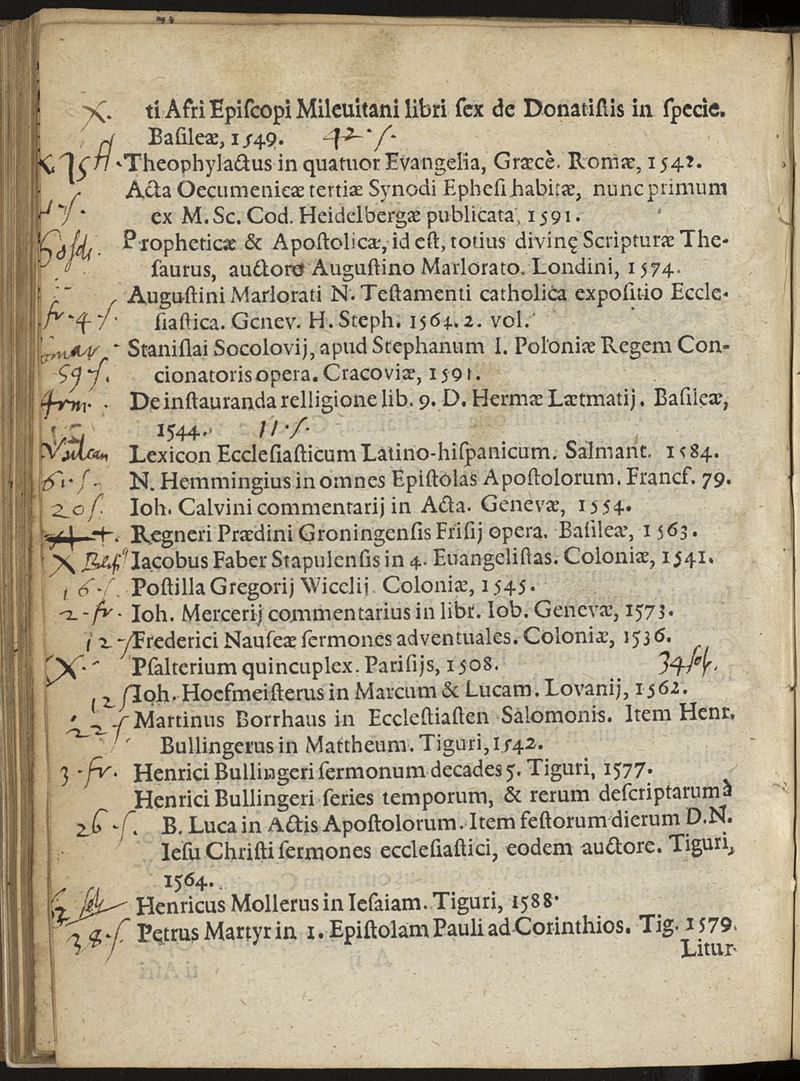 X. ti Afri Epiſcopi Mileuitani libri ſex de Donatiſtis in ſpecie.
Baſileæ, 1549. 42·ſ·
Theophylactus in quatuor Evangelia, Græcè. Romæ, 1542.
Acta Oecumenicæ tertiæ Synodi Epheſi habitæ, nunc primum
ex M. Sc. Cod. Heidelbergæ publicata, 1591.
Propheticæ & Apoſtolicæ, id eſt, totius divinę Scripturæ The-
ſaurus, auctore Auguſtino Marlorato. Londini, 1574.
Auguſtini Marlorati N. Teſtamenti catholica expoſitio Eccle-
fr·4·ſ· ſiaſtica. Genev. H. Steph. 1564. 2. vol.
Staniſlai Socolovij, apud Stephanum I. Poloniæ Regem Con-
59ſ. cionatoris opera. Cracoviæ, 1591.
De inſtauranda relligione lib. 9. D. Hermæ Lætmatij. Baſileæ,
1544. 11·ſ·
Lexicon Eccleſiaſticum Latino-hiſpanicum. Salmant. 1584.
61·ſ· N. Hemmingius in omnes Epiſtolas Apoſtolorum. Francf. 79.
20ſ. Ioh. Calvini commentarij in Acta. Genevæ, 1554.
Regneri Prædini Groningenſis Friſij opera. Baſileæ, 1563.
X Iacobus Faber Stapulenſis in 4. Euangeliſtas. Coloniæ, 1541.
16·ſ. Poſtilla Gregorij Wicelij. Coloniæ, 1545.
2·fr· Ioh. Mercerij commentarius in libr. Iob. Genevæ, 1573.
12·ſ Frederici Nauſeæ ſermones adventuales. Coloniæ, 1536.
X· Pſalterium quincuplex. Pariſijs, 1508.
12ſ Ioh. Hoefmeiſterus in Marcum & Lucam. Lovanij, 1562.
22ſ Martinus Borrhaus in Eccleſtiaſten Salomonis. Item Henr.
Bullingerus in Mattheum. Tiguri, 1542.
3·fr· Henrici Bullingeri ſermonum decades 5. Tiguri, 1577.
Henrici Bullingeri ſeries temporum, & rerum deſcriptarum à
26·ſ. B. Luca in Actis Apoſtolorum. Item feſtorum dierum D.N.
Ieſu Chriſti ſermones eccleſiaſtici, eodem auctore. Tiguri,
1564.
Henricus Mollerus in Ieſaiam. Tiguri, 1588.
38·ſ. Petrus Martyr in 1. Epiſtolam Pauli ad Corinthios. Tig. 1579.
Litur-